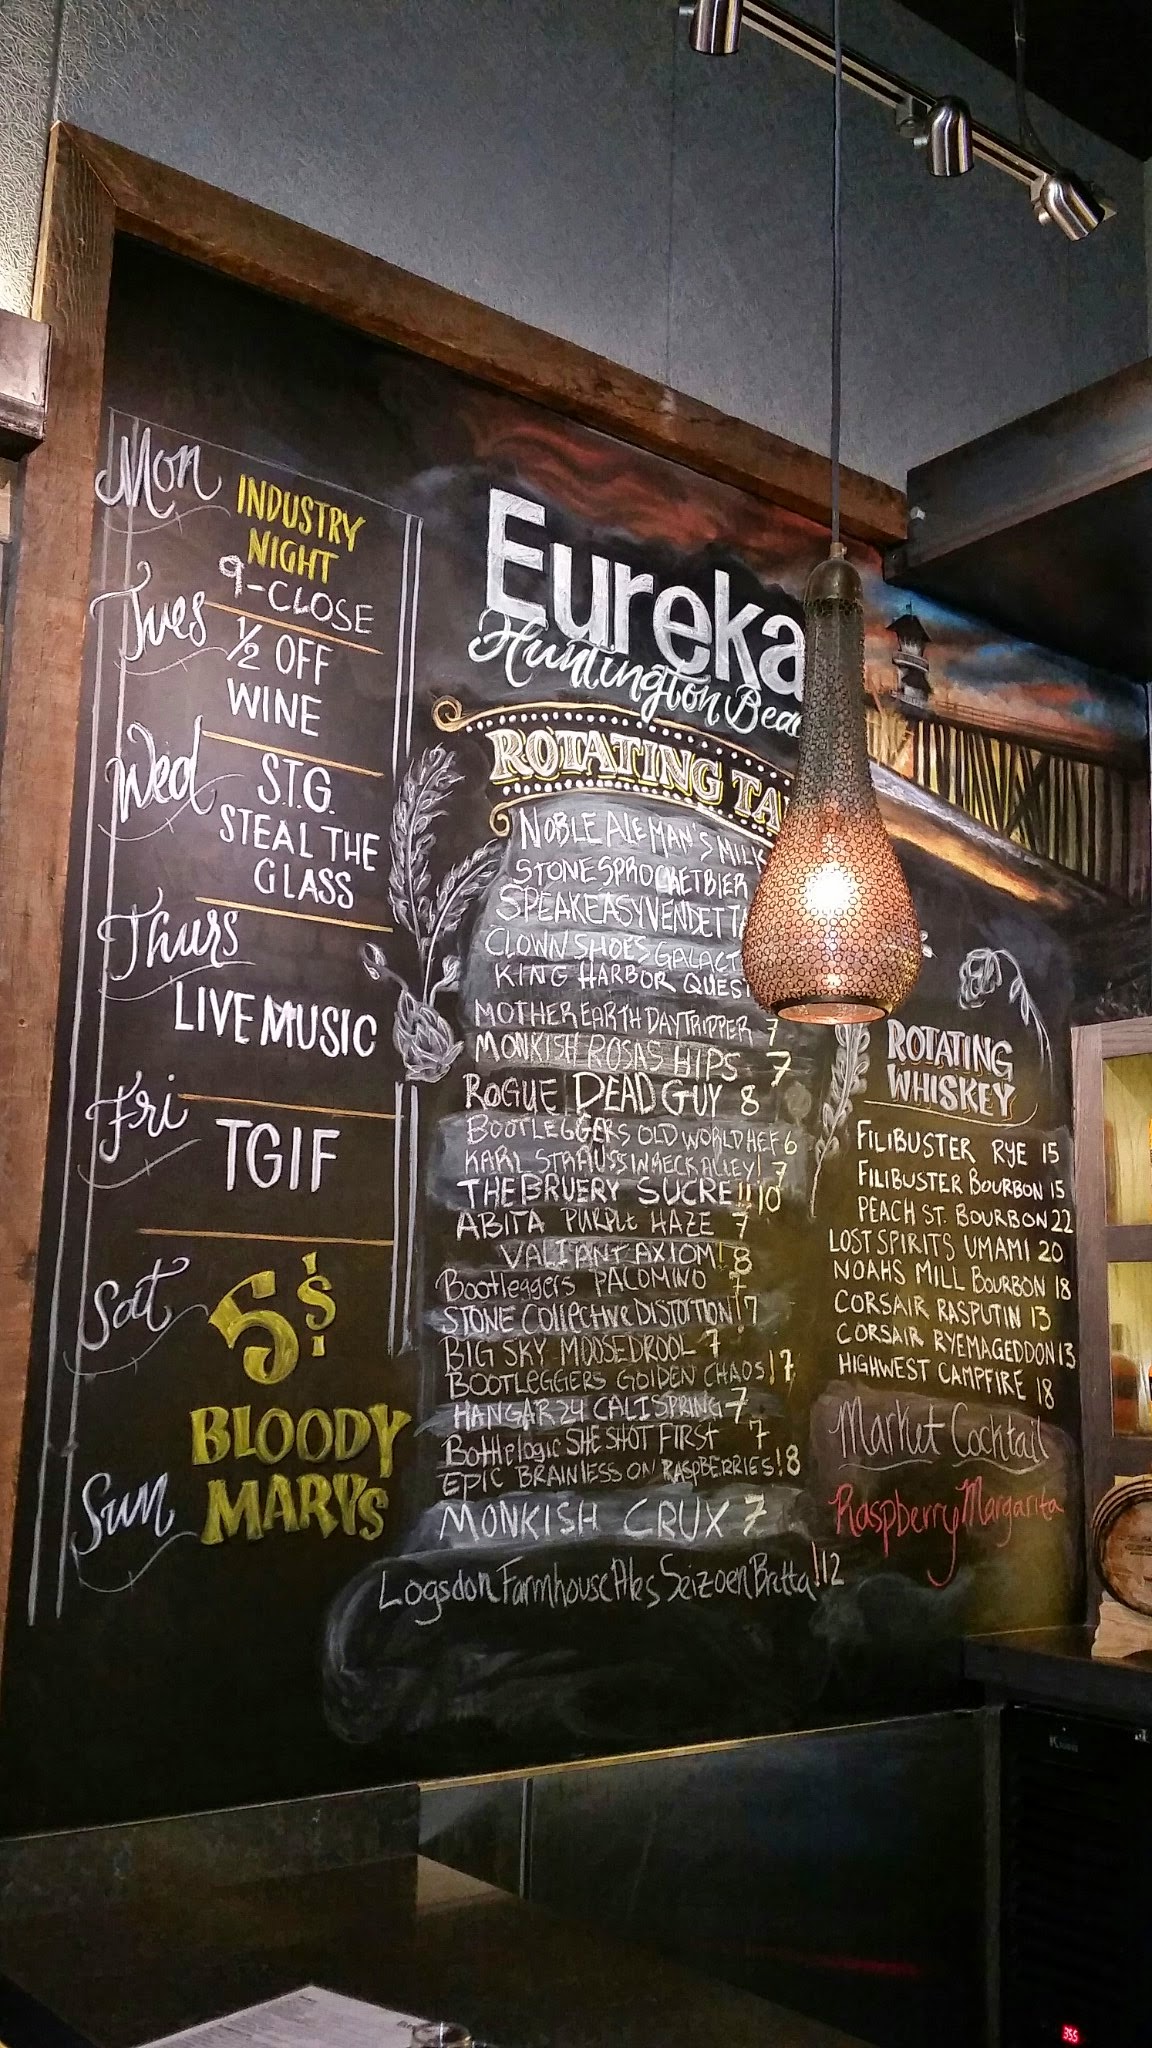 Mon
INDUSTRY
NIGHT
9-CLOSE
Tues
½ OFF
WINE
Wed
S.T.G.
STEAL THE
GLASS
Thurs
LIVE MUSIC
Fri
TGIF
Sat
5$
BLOODY
MARYS
Sun
Eureka
Huntington Beac
ROTATING TA
NOBLE ALE MAN'S MILK
STONE SPROCKETBIER
SPEAKEASY VENDETTA
CLOWN SHOES GALACT
KING HARBOR QUEST
MOTHER EARTH DAYTRIPPER 7
MONKISH ROSAS HIPS 7
ROGUE DEAD GUY 8
BOOTLEGGERS OLD WORLD HEF 6
KARL STRAUSS WRECK ALLEY! 7
THE BRUERY SUCRE!! 10
ABITA PURPLE HAZE 7
VALIANT AXIOM! 8
Bootleggers PALOMINO 7
STONE COllEctive DISTORTION! 7
BIG SKY MOOSEDROOL 7
BOOTLEGGERS GOLDEN CHAOS! 7
HANGAR 24 CALI SPRING 7
Bottlelogic SHE SHOT FIRST 7
EPIC BRAINLESS ON RASPBERRIES! 8
MONKISH CRUX 7
Logsdon Farmhouse Ales Seizoen Bretta! 12
ROTATING
WHISKEY
FILIBUSTER RYE 15
FILIBUSTER BOURBON 15
PEACH ST. BOURBON 22
LOST SPIRITS UMAMI 20
NOAHS MILL BOURBON 18
CORSAIR RASPUTIN 13
CORSAIR RYEMAGEDDON 13
HIGHWEST CAMPFIRE 18
Market Cocktail
Raspberry Margarita
355